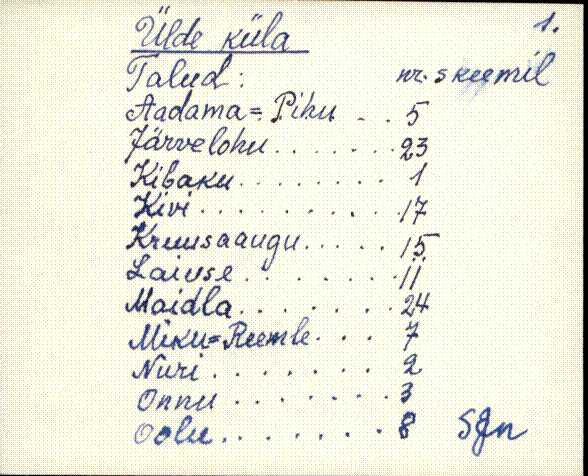 1.
Ülde küla
Talud: nr. skeemil
Aadama=Pihu . . 5
Järvelohu . . . . . . . 23
Kibaku . . . . . . . . 1
Kivi . . . . . . . . . 17
Kruusaaugu . . . . . 15
Laiuse . . . . . . . 11
Maidla . . . . . . . . 24
Miku=Reemle . . . 7
Nuri . . . . . . . 2
Onnu . . . . . . . 3
Oolu . . . . . . . 8